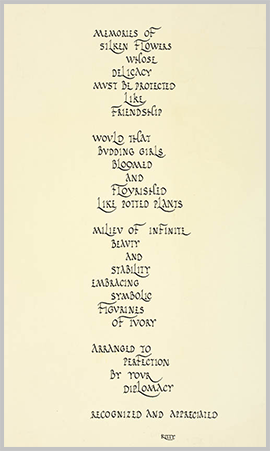 MEMORIES OF
SILKEN FLOWERS
WHOSE
DELICACY
MUST BE PROTECTED
LIKE
FRIENDSHIP
WOULD THAT
BUDDING GIRLS
BLOOMED
AND
FLOURISHED
LIKE POTTED PLANTS
MILIEU OF INFINITE
BEAUTY
AND
STABILITY
EMBRACING
SYMBOLIC
FIGURINES
OF IVORY
ARRANGED TO
PERFECTION
BY YOUR
DIPLOMACY
RECOGNIZED AND APPRECIATED